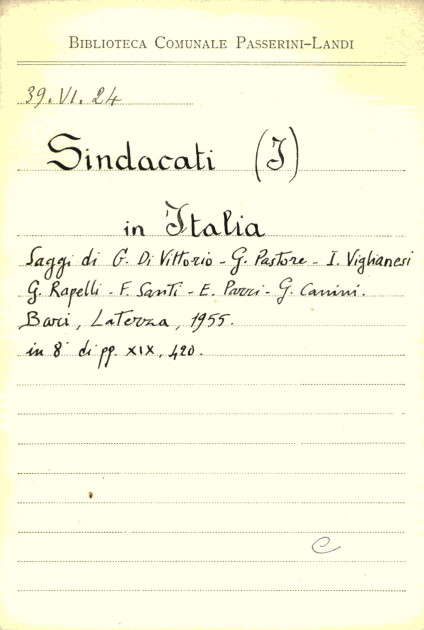 BIBLIOTECA COMUNALE PASSERINI-LANDI
39.VI.24
Sindacati (I)
in Italia
Saggi di G. Di Vittorio - G. Pastore - I. Viglianesi
G. Rapelli - F. Santi - E. Parri - G. Canini.
Bari, Laterza, 1955.
in 8° di pp. XIX, 420.
C